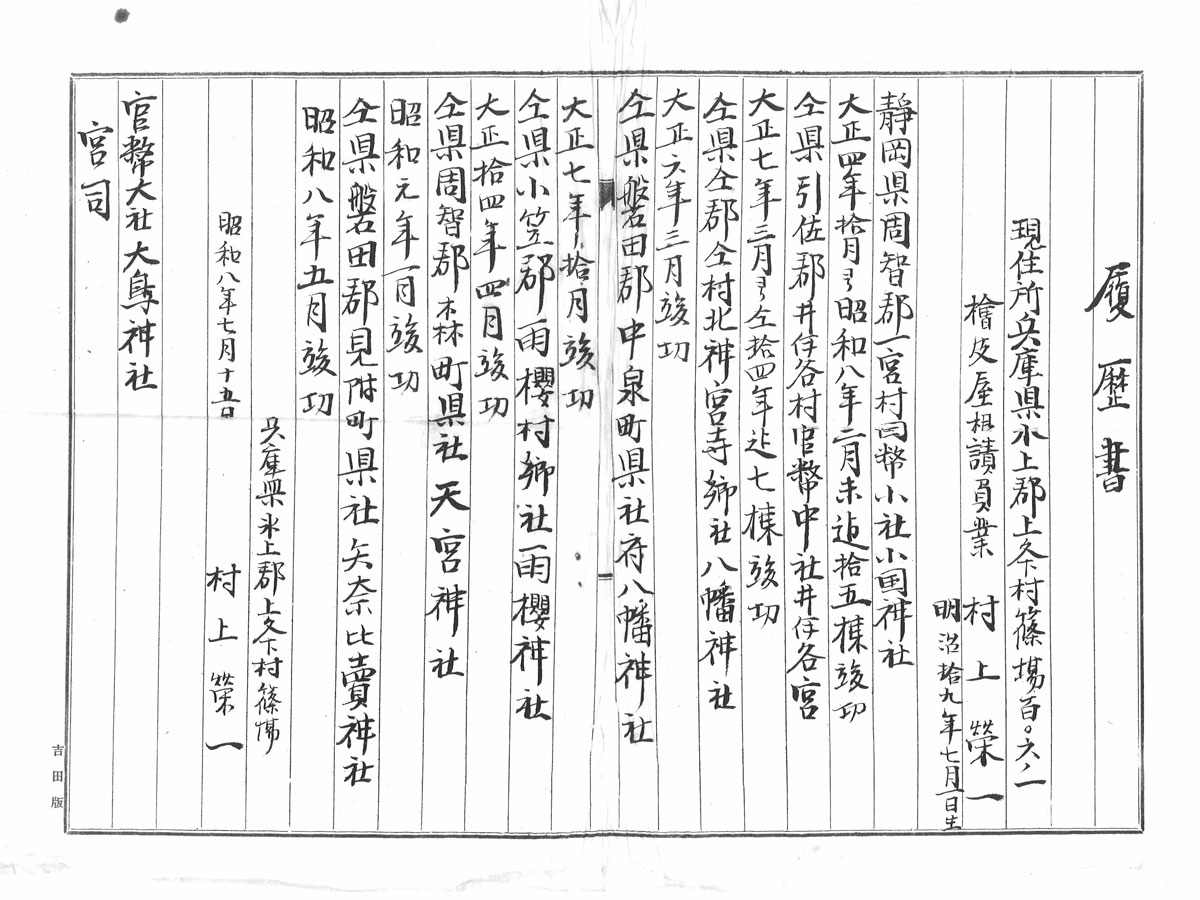 履歴書
現住所兵庫県氷上郡上久下村篠場百〇六ノ一
檜皮屋根請負業 村上榮一
明治拾九年七月一日生
静岡県周智郡一宮村国幣小社小国神社
大正四年拾月ヨリ昭和八年二月末迠拾五棟竣功
仝県引佐郡井伊谷村官幣中社井伊谷宮
大正七年三月ヨリ仝拾四年迠七棟竣功
仝県仝郡仝村北神宮寺郷社八幡神社
大正六年三月竣功
仝県磐田郡中泉町県社府八幡神社
大正七年拾月竣功
仝県小笠郡雨櫻村郷社雨櫻神社
大正拾四年四月竣功
仝県周智郡森町県社天宮神社
昭和元年一月竣功
仝県磐田郡見附町県社矢奈比賣神社
昭和八年五月竣功
兵庫県氷上郡上久下村篠場
昭和八年七月十五日 村上榮一
官幣大社大鳥神社
宮司
吉田版